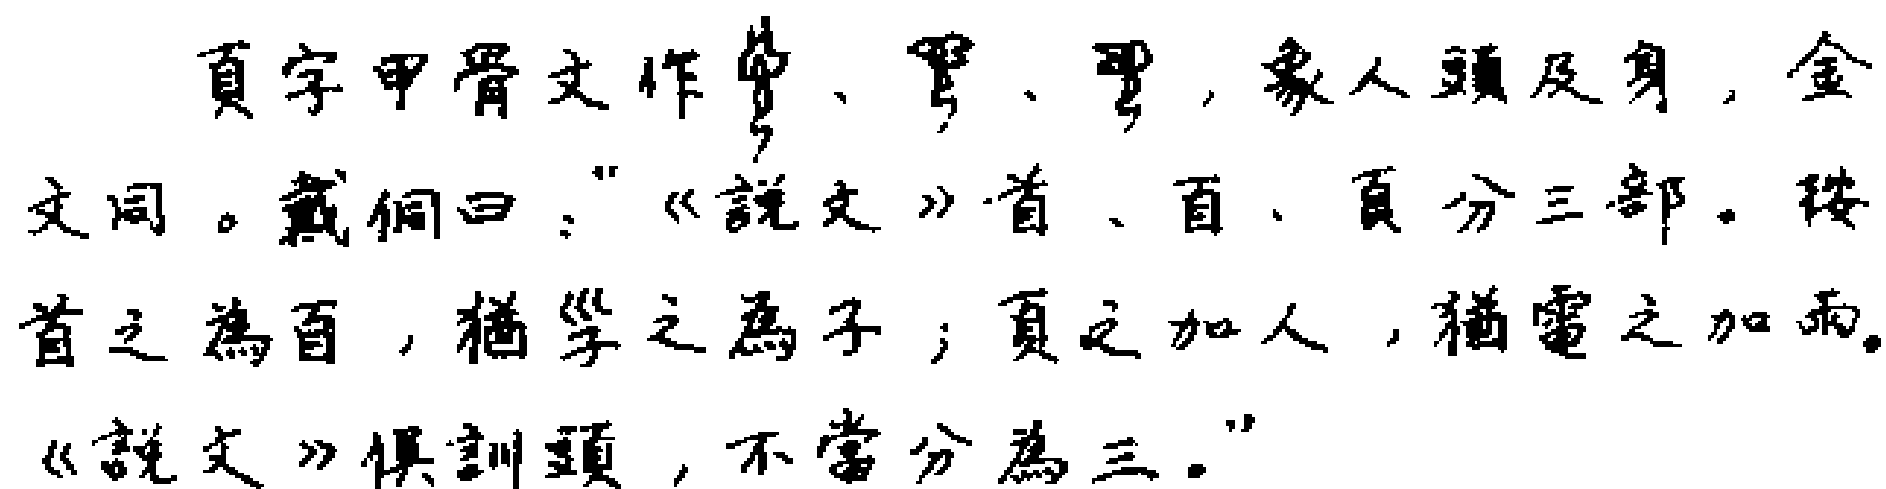 頁字甲骨文作、、,象人頭及身,金
文同。戴侗曰:“《說文》首、𦣻、頁分三部。按
首之為𦣻,猶㜽之為子;頁之加人,猶電之加雨。
《說文》俱訓頭,不當分為三。”